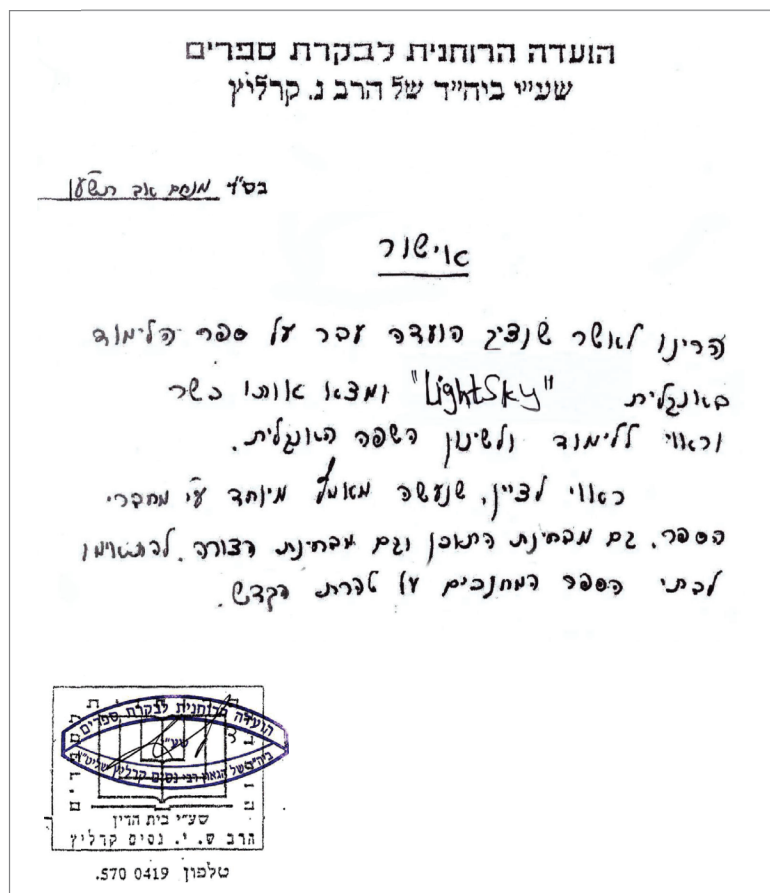 הועדה הרוחנית לבקרת ספרים
שע"י ביה"ד של הרב נ. קרליץ
בס"ד מנחם אב תשע"ו
אישור
הרינו לאשר שנציג הועדה עבר על ספר הלימוד
באנגלית "LightSky" ומצא אותו כשר
וראוי ללימוד ולשינון השפה האנגלית.
ראוי לציין, שנעשה מאמץ מיוחד ע"י מחברי
הספר, גם מבחינת התוכן וגם מבחינת הצורה, להתאימו
לבתי הספר המחנכים על טהרת הקדש.
הועדה הרוחנית לבקרת ספרים
שע"י
ביה"ד של הגאון רבי נסים קרליץ שליט"א
שע"י בית הדין
הרב ש. י. נסים קרליץ
טלפון 570 0419.